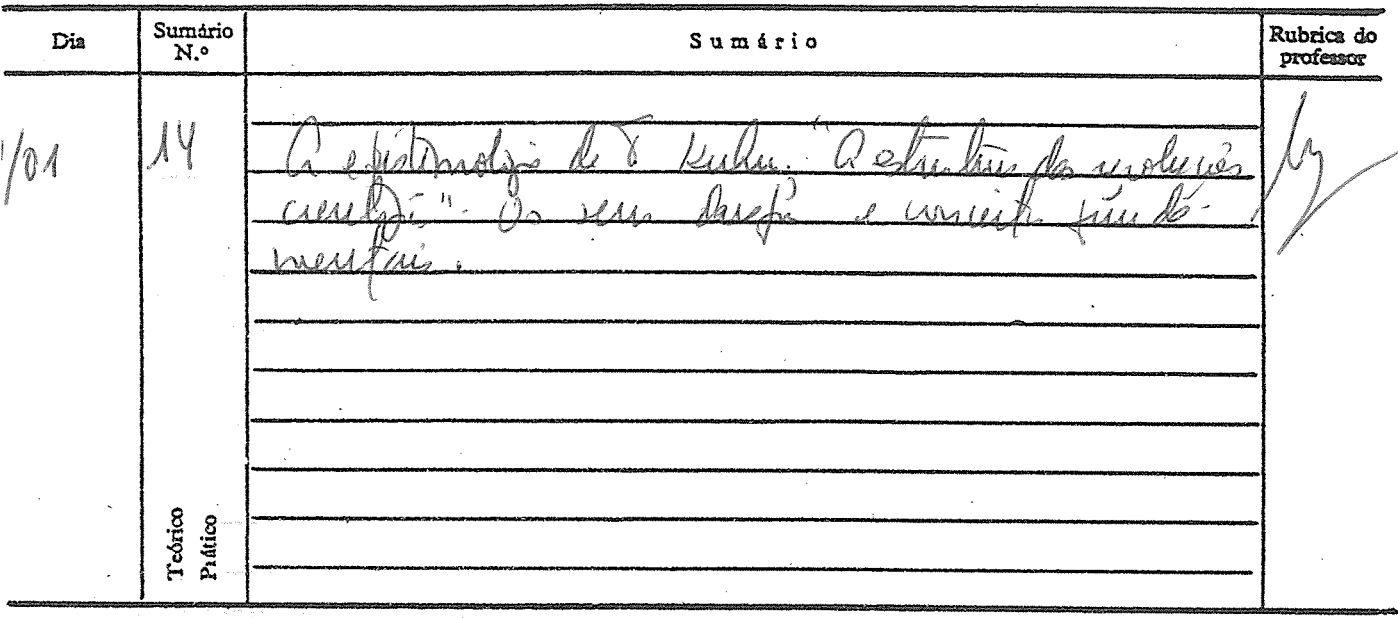 Dia
Sumário N.º
Sumário
Rubrica do professor
/01
14
A epistemologia de T Kuhn. "A estrutura das revoluções
científicas". Os seus e conceitos funda-
mentais.
Teórico
Prático